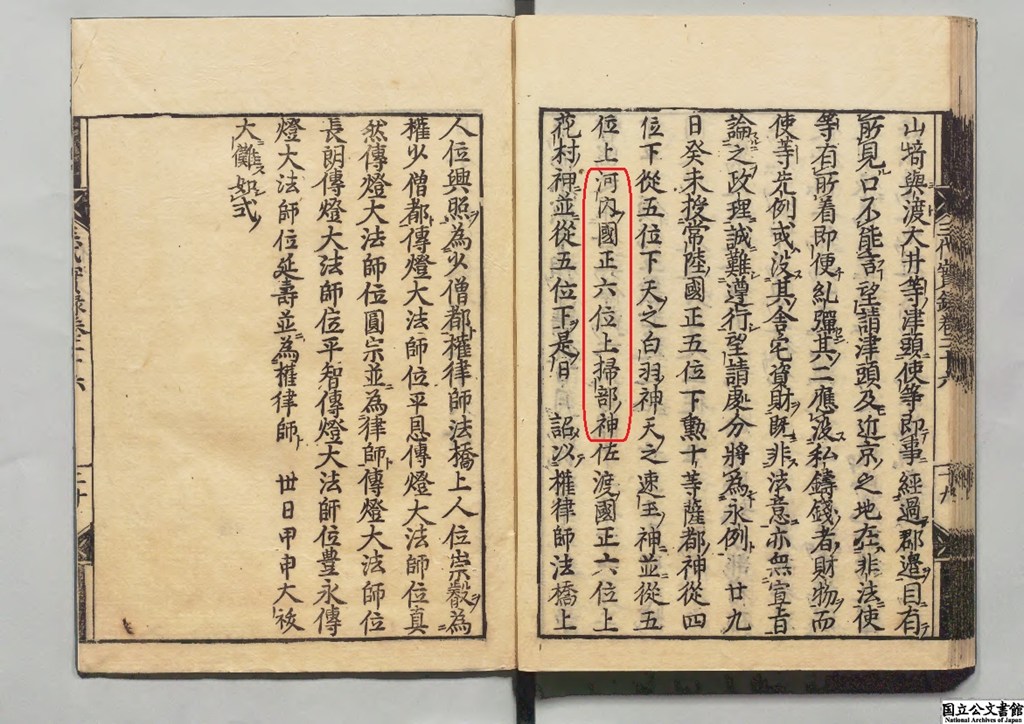 山埼與渡大井等津頭使等即事經過郡邊目有
所見口不能言望請津頭及近京之地在非法使
等有所看即便糺彈其二應沒私鑄錢者財物而
使等先例或沒其舍宅資財既非法意亦無宣旨
論之政理誠難遵行望請處分將為永例 廿九
日癸未授常陸國正五位下勲十等薩都神從四
位下從五位下天之白羽神天之速玉神並從五
位上河內國正六位上掃部神佐渡國正六位上
花村神並從五位下是日 詔以權律師法橋上
三代實錄卷二十六
人位興照為少僧都權律師法橋上人位崇叡為
權少僧都傳燈大法師位平恩傳燈大法師位真
然傳燈大法師位圓宗並為律師傳燈大法師位
長朗傳燈大法師位平智傳燈大法師位豊永傳
燈大法師位延壽並為權律師 丗日甲申大祓
大儺如式
国立公文書館
National Archives of Japan